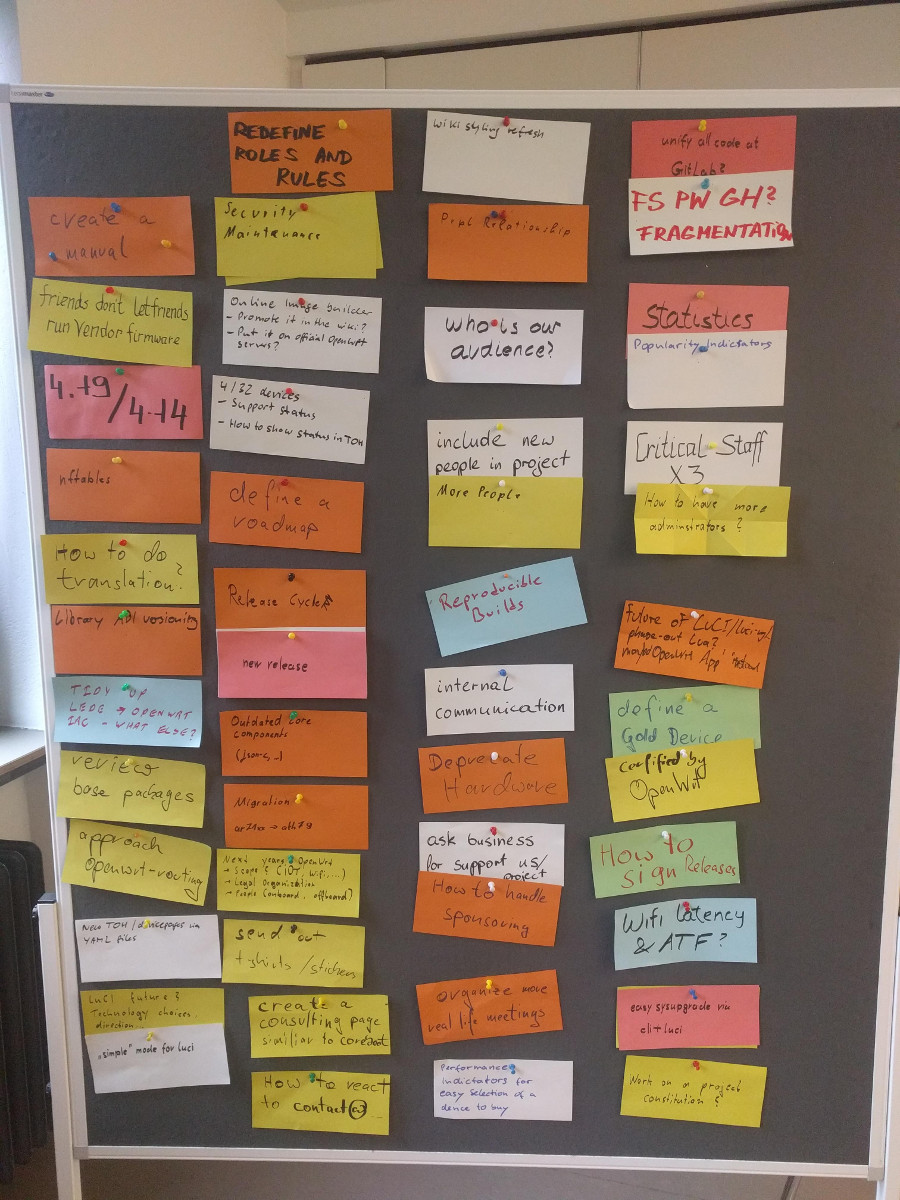 create a
manual
friends don't let friends
run Vendor firmware
4.19/4.14
nftables
How to do
translation?
Library ABI versioning
TIDY UP
LEDE → OPENWRT
IRC - WHAT ELSE?
review
base packages
approach
Openwrt-routing
New TOH / devicepages via
YAML files
LuCI future?
Technology choices,
direction...
"simple" mode for luci
REDEFINE
ROLES AND
RULES
Security
Maintenance
Online Image builder
- Promote it in the wiki?
- Put it on official OpenWrt
servers?
4/32 devices
- Support status
- How to show status in TOH
define a
roadmap
Release Cycles
new release
Outdated core
components
Migration
ar71xx → ath79
Next years OpenWrt
→ Scope (IOT, Wifi, ...)
→ Legal Organization
→ People (onboard, offboard)
send out
t-shirts / stickers
create a
consulting page
similiar to coreboot
How to react
to contact@
Wiki styling refresh
Prpl Relationship
Who is our
audience?
include new
people in project
More People
Reproducible
Builds
internal
communication
Deprecate
Hardware
ask business
for support us/
project
How to handle
Sponsoring
organize more
real life meetings
Performance
indictators for
easy selection of a
device to buy
unify all code at
GitLab?
FS PW GH?
FRAGMENTATION
Statistics
Popularity Indictators
Critical Staff
X3
How to have more
adminstrators?
future of LuCI/luci-ng/
phase-out Lua?
maybe OpenWrt App
define a
Gold Device
certified by
OpenWrt
How to
sign Releases
Wifi latency
& ATF?
easy sysupgrade via
cli + luci
Work on a project
constitution?